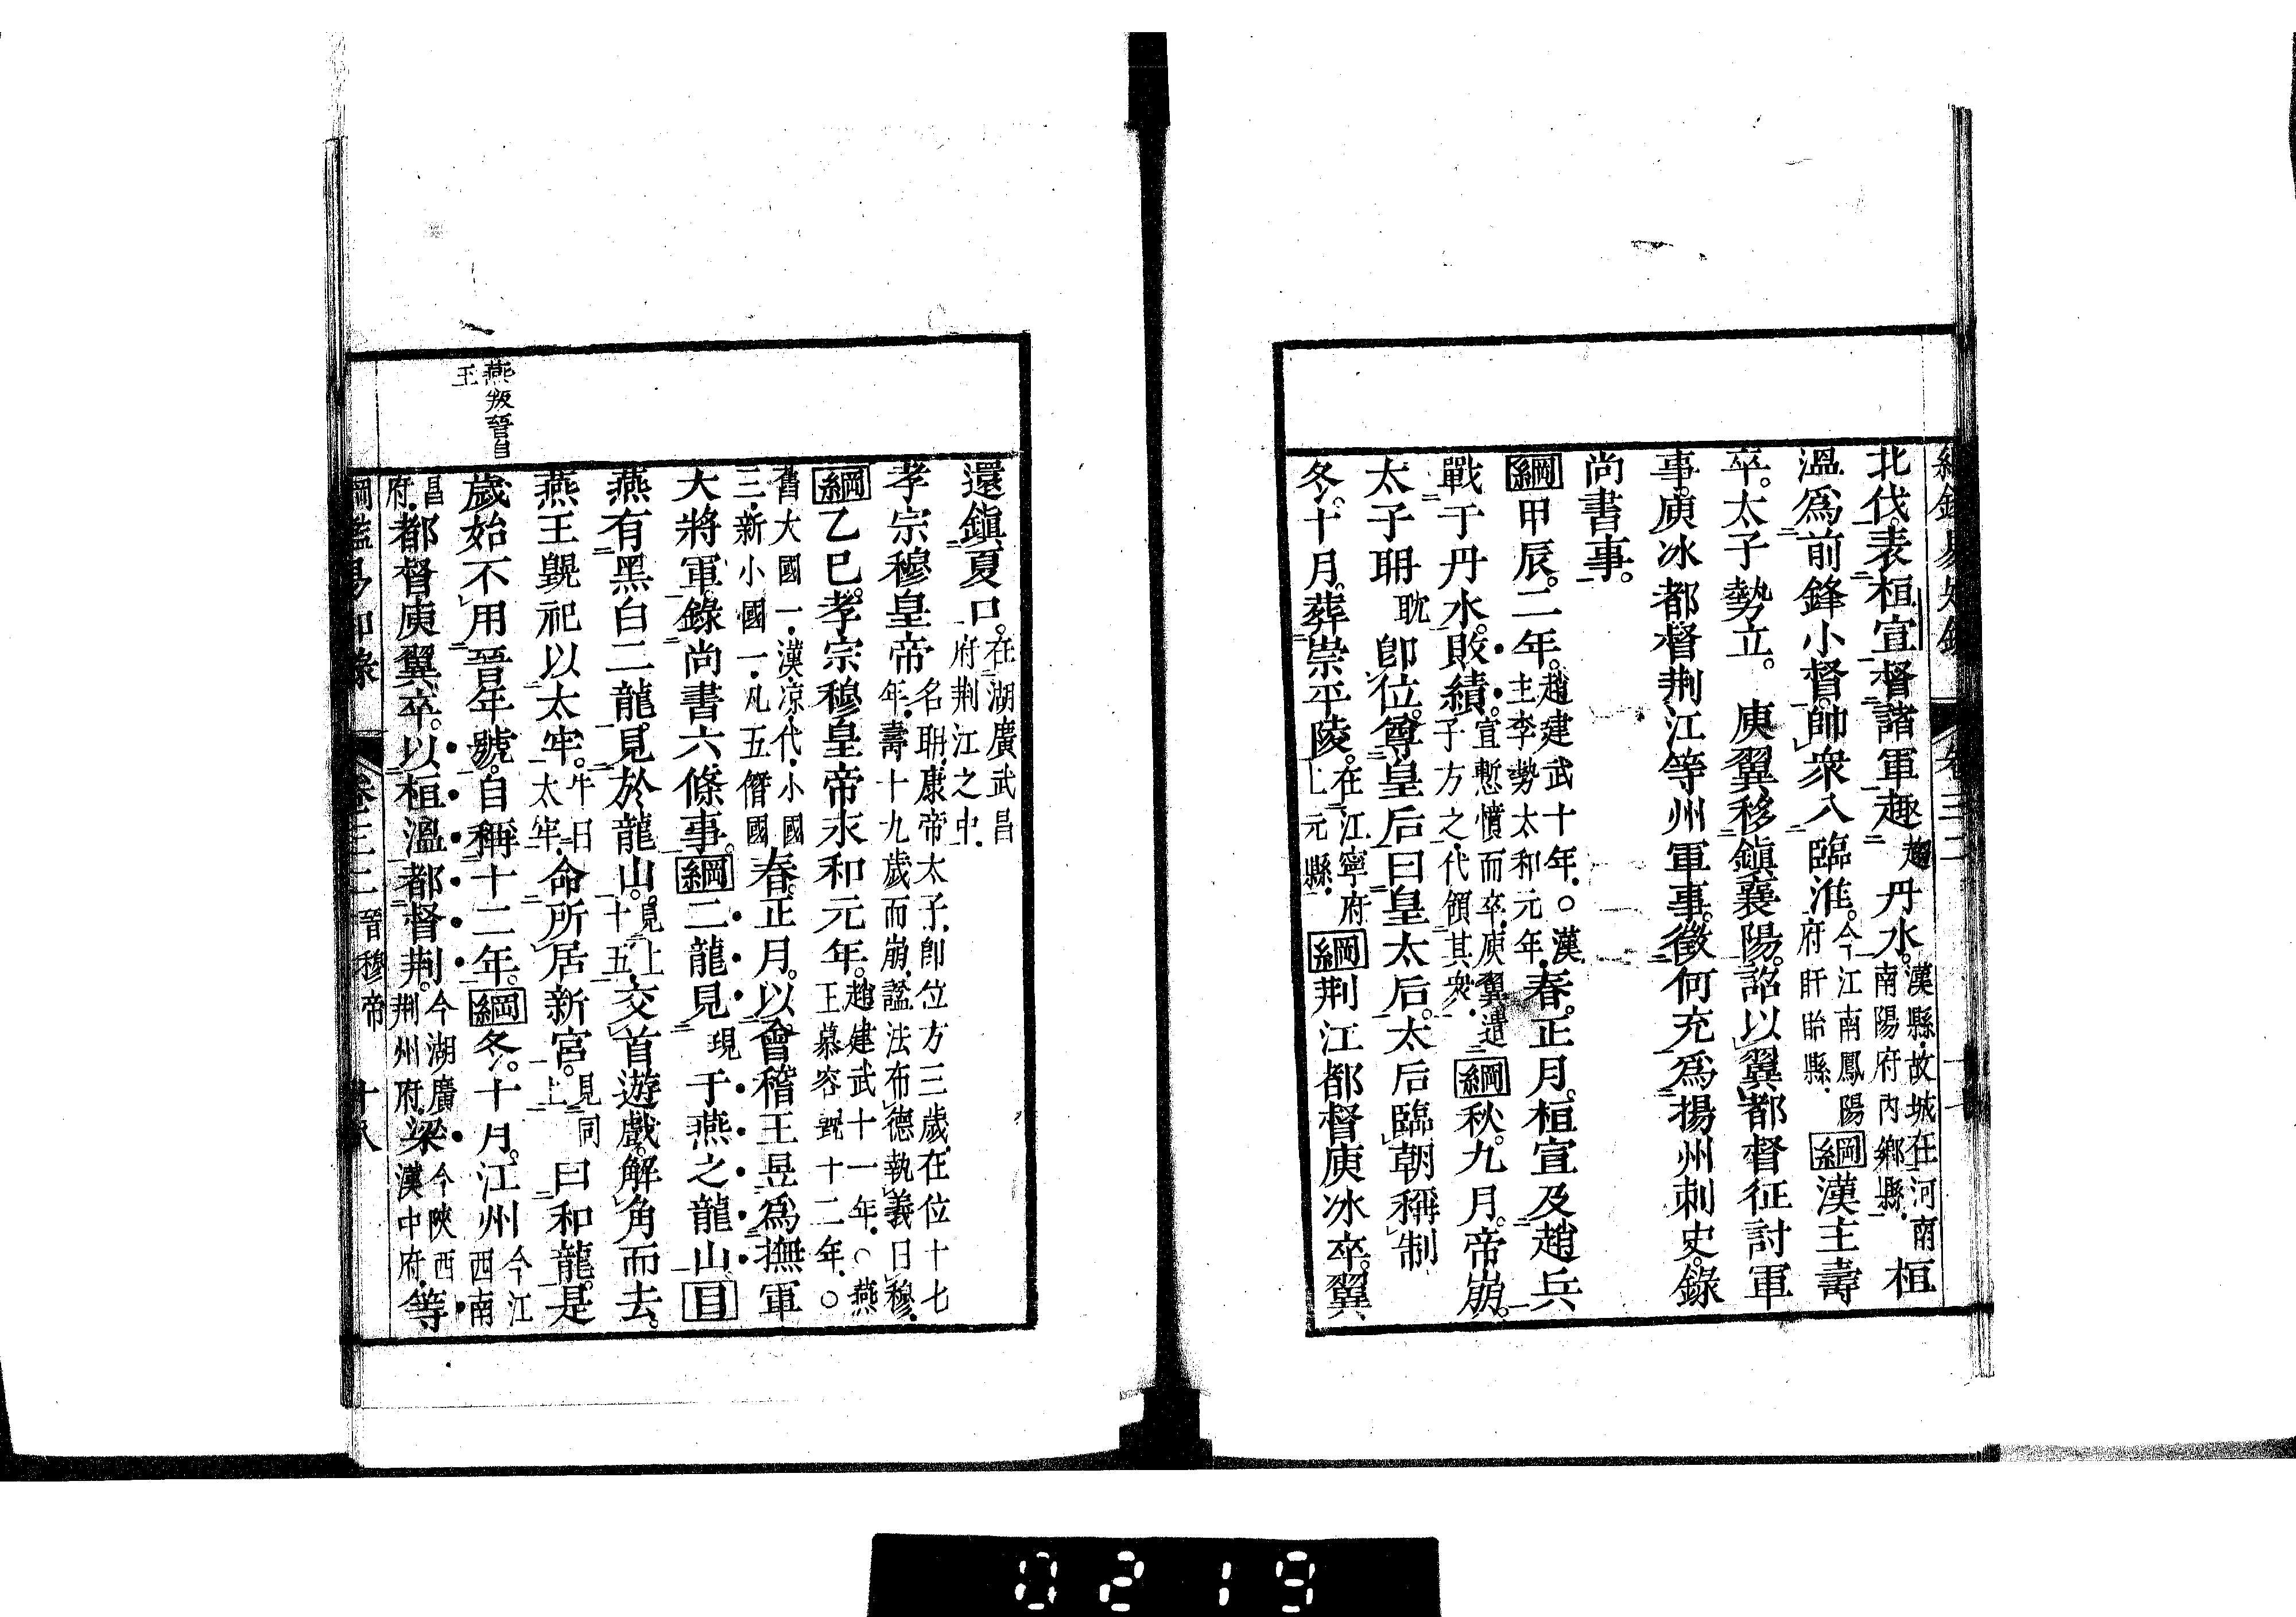 北伐。表桓宣督諸軍趣趨丹水。漢縣。故城在河南南陽府內鄉縣。桓
溫爲前鋒小督。帥衆入臨淮。今江南鳳陽府盱眙縣。綱漢主壽
卒。太子勢立。庾翼移鎭襄陽。詔以翼都督征討軍
事。庾冰都督荆江等州軍事。徵何充爲揚州刺史。錄
尚書事。
綱甲辰。二年。趙建武十年。○漢主李勢太和元年。春。正月。桓宣及趙兵
戰于丹水。敗績。宣慙憤而卒。庾翼遣子方之。代領其衆。綱秋。九月。帝崩。
太子聃耽卽位。尊皇后曰皇太后。太后臨朝稱制
冬。十月。葬崇平陵。在江寧府上元縣。綱荆江都督庾冰卒。翼
還鎭夏口。在湖廣武昌府荆江之中。
孝宗穆皇帝名聃。康帝太子。卽位方三歲。在位十七年。壽十九歲而崩。諡法布德執義曰穆。
綱乙巳。孝宗穆皇帝永和元年。趙建武十一年。○燕王慕容皝十二年。○
舊大國一。漢。凉。代。小國三。新小國一。凡五僭國春。正月。以會稽王昱爲撫軍
大將軍。錄尚書六條事。綱二龍見現于燕之龍山目
燕有黑白二龍。見於龍山。見上十五交首遊戲。解角而去。
燕王皝祀以太牢。牛曰太牢。命所居新宮。見同上曰和龍。是
歲始不用晉年號。自稱十二年。綱冬。十月。江州今江西南
昌府。都督庾翼卒。以桓溫都督荆。今湖廣荆州府。梁今陝西漢中府。等
燕叛晉自
王
卷三二 晉穆帝 十八
0219